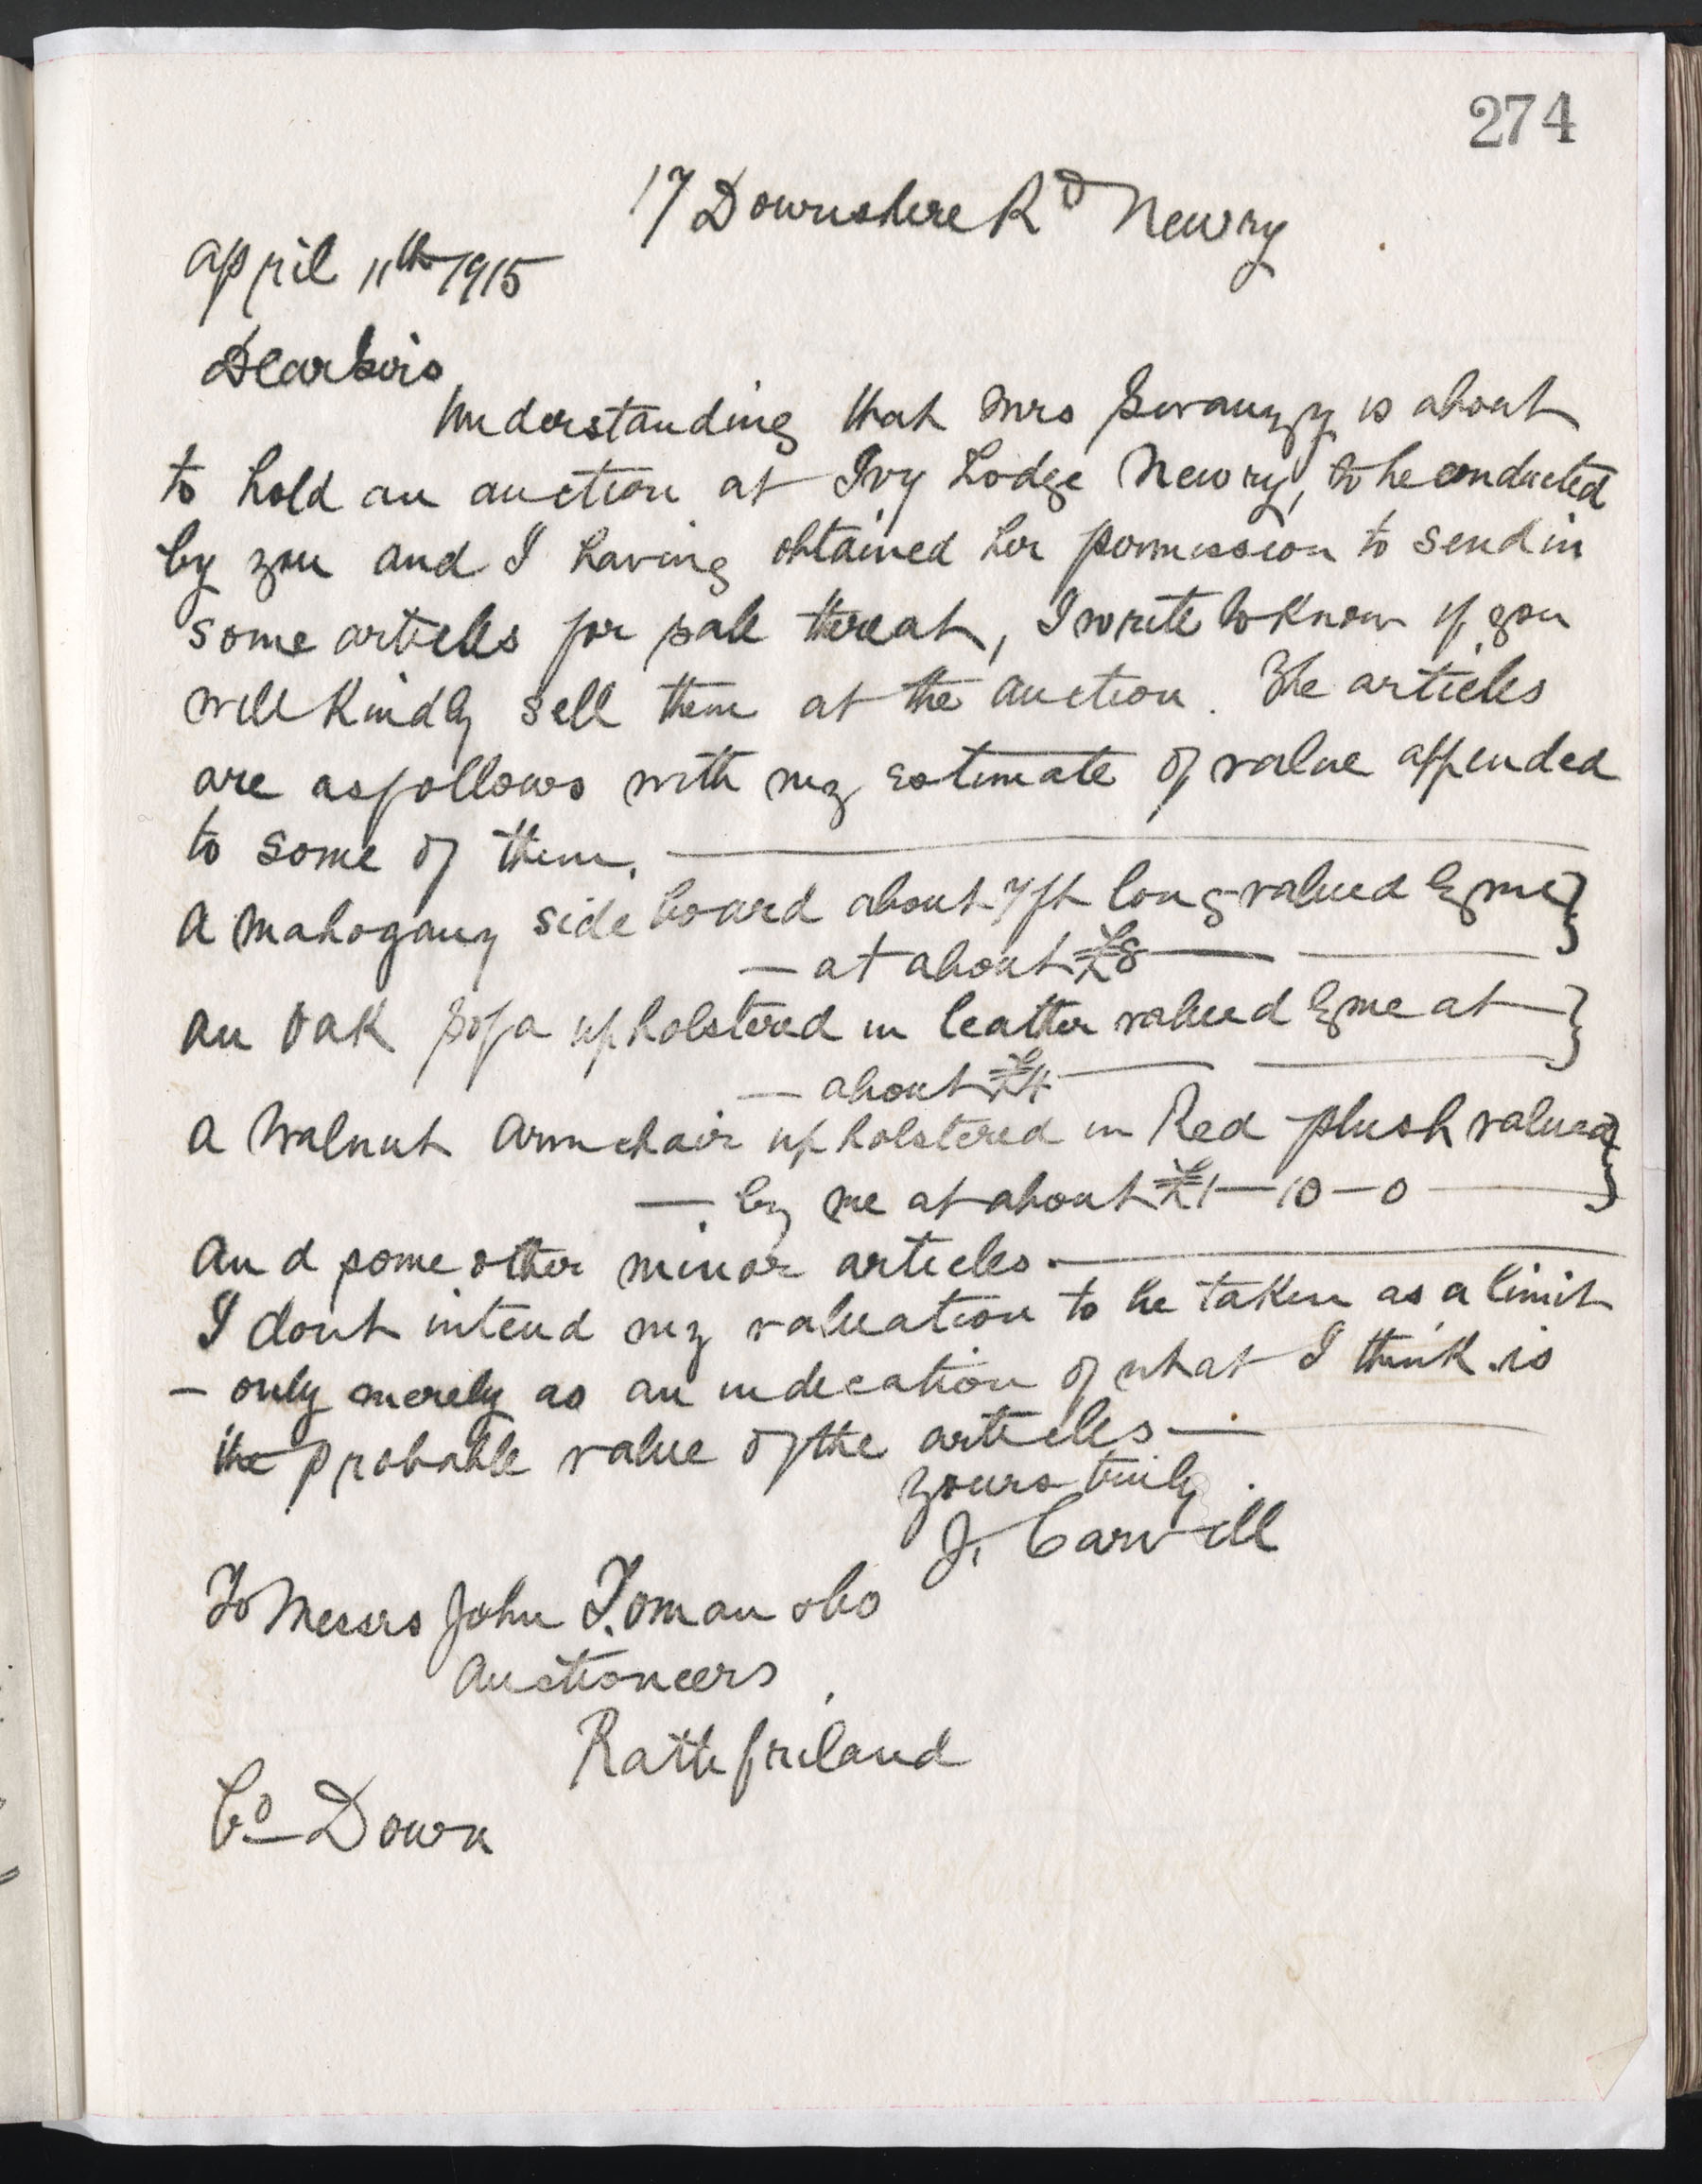 274
17 Downshire Rd Newry
April 11th 1915
Dear Sirs,
Understanding that Mrs Swanzy is about
to hold an auction at Ivy Lodge Newry, to be conducted
by you and I having obtained her permission to send in
some articles for sale thereat, I write to know if you
will kindly sell them at the auction. The articles
are as follows with my estimate of value appended
to some of them. —
A mahogany side board about 7ft long valued by me }
— at about £8 — —
An Oak Sofa upholstered in leather valued by me at — }
— about £4 — —
A Walnut Armchair upholstered in Red plush valued }
— by me at about £1—10—0 —
And some other minor articles. —
I dont intend my valuation to be taken as a limit
— only merely as an indication of what I think is
the probable value of the articles —
Yours truly
J. Carvill
To Messrs John Toman & Co
Auctioneers,
Rathfriland
Co Down